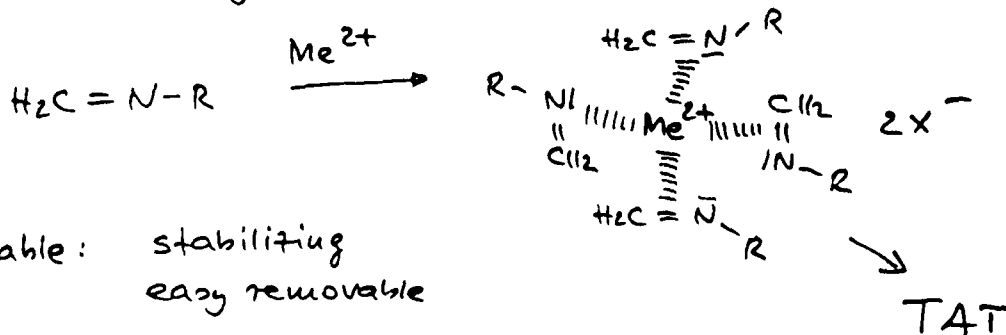 Me²⁺
H₂C = N - R
H₂C = N - R
R - N| Me²⁺ CH₂ 2X⁻
CH₂ |N - R
H₂C = N̄ - R
able: stabilizing
easy removable
TAT